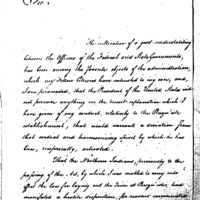 Sir,
The cultivation of a good understanding
between the Officers of the Federal and State Governments,
has been among the favorite objects of the administration,
which my Fellow Citizens have intrusted to my care, and,
I am, persuaded, that the President of the United States will
not perceive any thing in the recent explanation which I
have given of my conduct, relatively to the Presqu'isle
establishment, that would warrant a deviation from
that cordial and harmonizing spirit by which he has
been, reciprocally, actuated.
That the Northern Indians, previously to the
passing of the Act, by which I was enabled to carry into
effect the law for laying out the Town at Presqu'isle, had
manifested a hostile disposition, for reasons unconnected